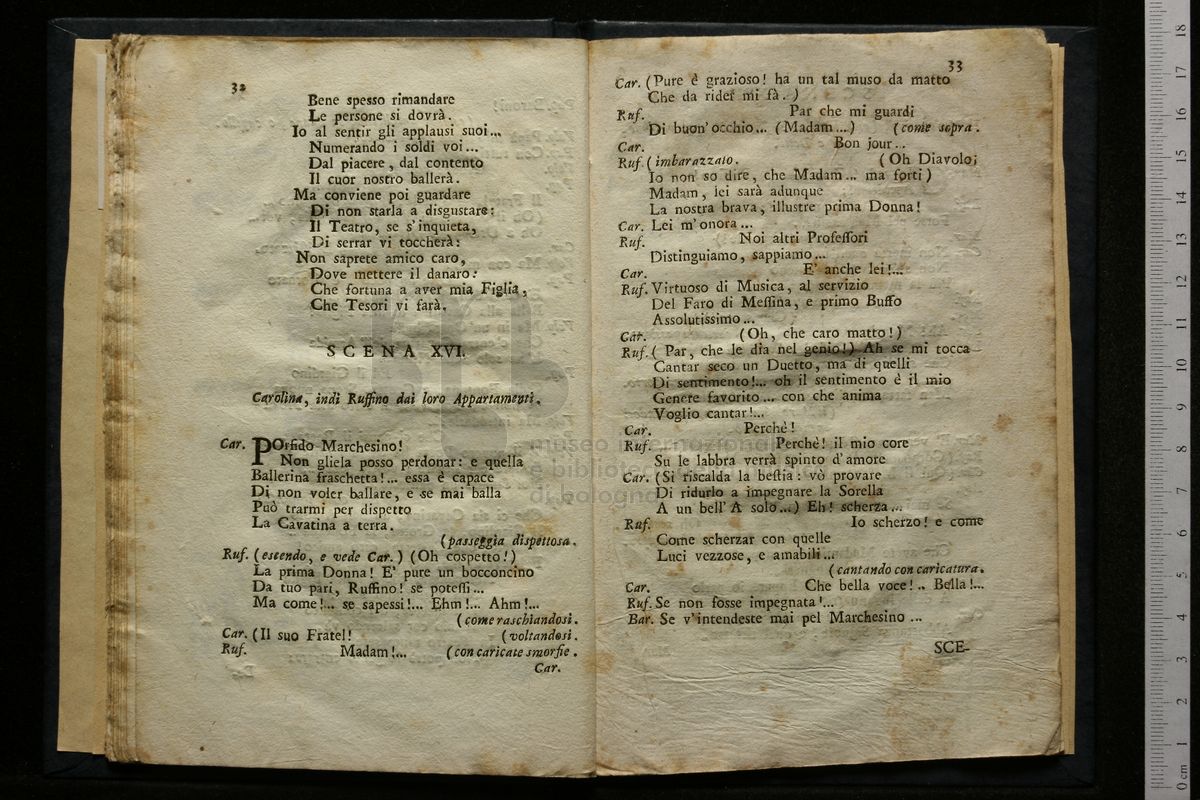 32
Bene spesso rimandare
Le persone si dovrà.
Io al sentir gli applausi suoi...
Numerando i soldi voi...
Dal piacere, dal contento
Il cuor nostro ballerà.
Ma conviene poi guardare
Di non starla a disgustare:
Il Teatro, se s'inquieta,
Di serrar vi toccherà:
Non saprete amico caro,
Dove mettere il danaro:
Che fortuna a aver mia Figlia,
Che Tesori vi farà.
SCENA XVI.
Carolina, indi Ruffino dai loro Appartamenti.
Car. POrfido Marchesino!
Non gliela posso perdonar: e quella
Ballerina fraschetta!... essa è capace
Di non voler ballare, e se mai balla
Può trarmi per dispetto
La Cavatina a terra.
(passeggia dispettosa.
Ruf. (escendo, e vede Car.) (Oh cospetto!)
La prima Donna! E' pure un bocconcino
Da tuo pari, Ruffino! se potessi...
Ma come!... se sapessi!... Ehm!... Ahm!...
(come raschiandosi.
Car. (Il suo Fratel! (voltandosi.
Ruf. Madam!... (con caricate smorfie.
Car.
33
Car. (Pure è grazioso! ha un tal muso da matto
Che da rider mi fà.)
Ruf. Par che mi guardi
Di buon'occhio... (Madam...) (come sopra.
Car. Bon jour...
Ruf. (imbarazzato. (Oh Diavolo;
Io non so dire, che Madam... ma forti)
Madam, lei sarà adunque
La nostra brava, illustre prima Donna!
Car. Lei m'onora...
Ruf. Noi altri Professori
Distinguiamo, sappiamo...
Car. E' anche lei!...
Ruf. Virtuoso di Musica, al servizio
Del Faro di Messina, e primo Buffo
Assolutissimo...
Car. (Oh, che caro matto!)
Ruf. (Par, che le dia nel genio!) Ah se mi tocca
Cantar seco un Duetto, ma di quelli
Di sentimento!... oh il sentimento è il mio
Genere favorito... con che anima
Voglio cantar!...
Car. Perchè!
Ruf. Perchè! il mio core
Su le labbra verrà spinto d'amore
Car. (Si riscalda la bestia: vò provare
Di ridurlo a impegnare la Sorella
A un bell'A solo...) Eh! scherza...
Ruf. Io scherzo! e come
Come scherzar con quelle
Luci vezzose, e amabili...
(cantando con caricatura.
Car. Che bella voce!.. Bella!...
Ruf. Se non fosse impegnata!...
Bar. Se v'intendeste mai pel Marchesino...
SCE-
museo internazionale
e biblioteca
di bologna
18
17
16
15
14
13
12
11
10
9
8
7
6
5
4
3
2
1
0 cm